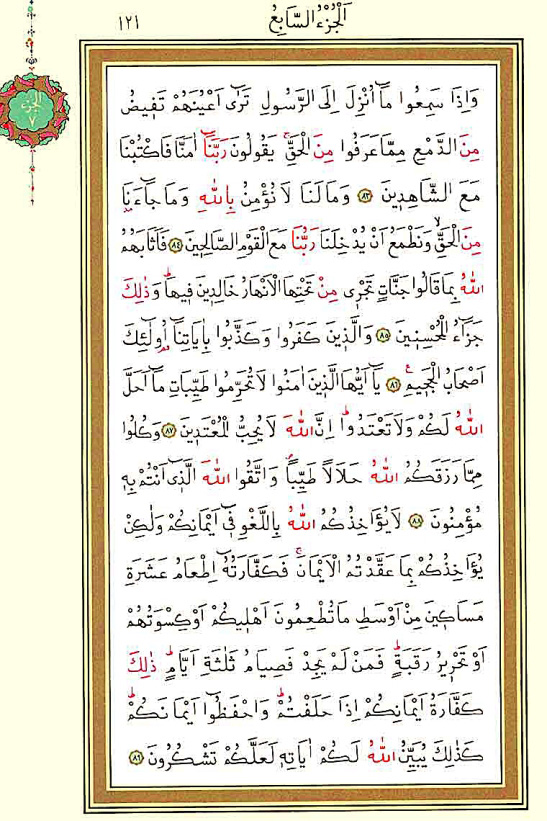 اَلْجُزْءُ السَّابِعُ
١٢١
الجزء
٧
وَاِذَا سَمِعُوا مَٓا اُنْزِلَ اِلَى الرَّسُولِ تَرٰٓى اَعْيُنَهُمْ تَف۪يضُ
مِنَ الدَّمْعِ مِمَّا عَرَفُوا مِنَ الْحَقِّۚ يَقُولُونَ رَبَّنَٓا اٰمَنَّا فَاكْتُبْنَا
مَعَ الشَّاهِد۪ينَ ٨٣ وَمَا لَنَا لَا نُؤْمِنُ بِاللّٰهِ وَمَا جَٓاءَنَا
مِنَ الْحَقِّۙ وَنَطْمَعُ اَنْ يُدْخِلَنَا رَبُّنَا مَعَ الْقَوْمِ الصَّالِح۪ينَ ٨٤ فَاَثَابَهُمُ
اللّٰهُ بِمَا قَالُوا جَنَّاتٍ تَجْر۪ي مِنْ تَحْتِهَا الْاَنْهَارُ خَالِد۪ينَ ف۪يهَاۜ وَذٰلِكَ
جَزَٓاءُ الْمُحْسِن۪ينَ ٨٥ وَالَّذ۪ينَ كَفَرُوا وَكَذَّبُوا بِاٰيَاتِنَٓا اُو۬لٰٓئِكَ
اَصْحَابُ الْجَح۪يمِ۟ ٨٦ يَٓا اَيُّهَا الَّذ۪ينَ اٰمَنُوا لَا تُحَرِّمُوا طَيِّبَاتِ مَٓا اَحَلَّ
اللّٰهُ لَكُمْ وَلَا تَعْتَدُواۜ اِنَّ اللّٰهَ لَا يُحِبُّ الْمُعْتَد۪ينَ ٨٧ وَكُلُوا
مِمَّا رَزَقَكُمُ اللّٰهُ حَلَالًا طَيِّبًاۖ وَاتَّقُوا اللّٰهَ الَّذ۪ٓي اَنْتُمْ بِه۪
مُؤْمِنُونَ ٨٨ لَا يُؤَاخِذُكُمُ اللّٰهُ بِاللَّغْوِ ف۪ٓي اَيْمَانِكُمْ وَلٰكِنْ
يُؤَاخِذُكُمْ بِمَا عَقَّدْتُمُ الْاَيْمَانَۚ فَكَفَّارَتُهُٓ اِطْعَامُ عَشَرَةِ
مَسَاك۪ينَ مِنْ اَوْسَطِ مَا تُطْعِمُونَ اَهْل۪يكُمْ اَوْ كِسْوَتُهُمْ
اَوْ تَحْر۪يرُ رَقَبَةٍۜ فَمَنْ لَمْ يَجِدْ فَصِيَامُ ثَلٰثَةِ اَيَّامٍۜ ذٰلِكَ
كَفَّارَةُ اَيْمَانِكُمْ اِذَا حَلَفْتُمْۜ وَاحْفَظُٓوا اَيْمَانَكُمْۜ
كَذٰلِكَ يُبَيِّنُ اللّٰهُ لَكُمْ اٰيَاتِه۪ لَعَلَّكُمْ تَشْكُرُونَ ٨٩